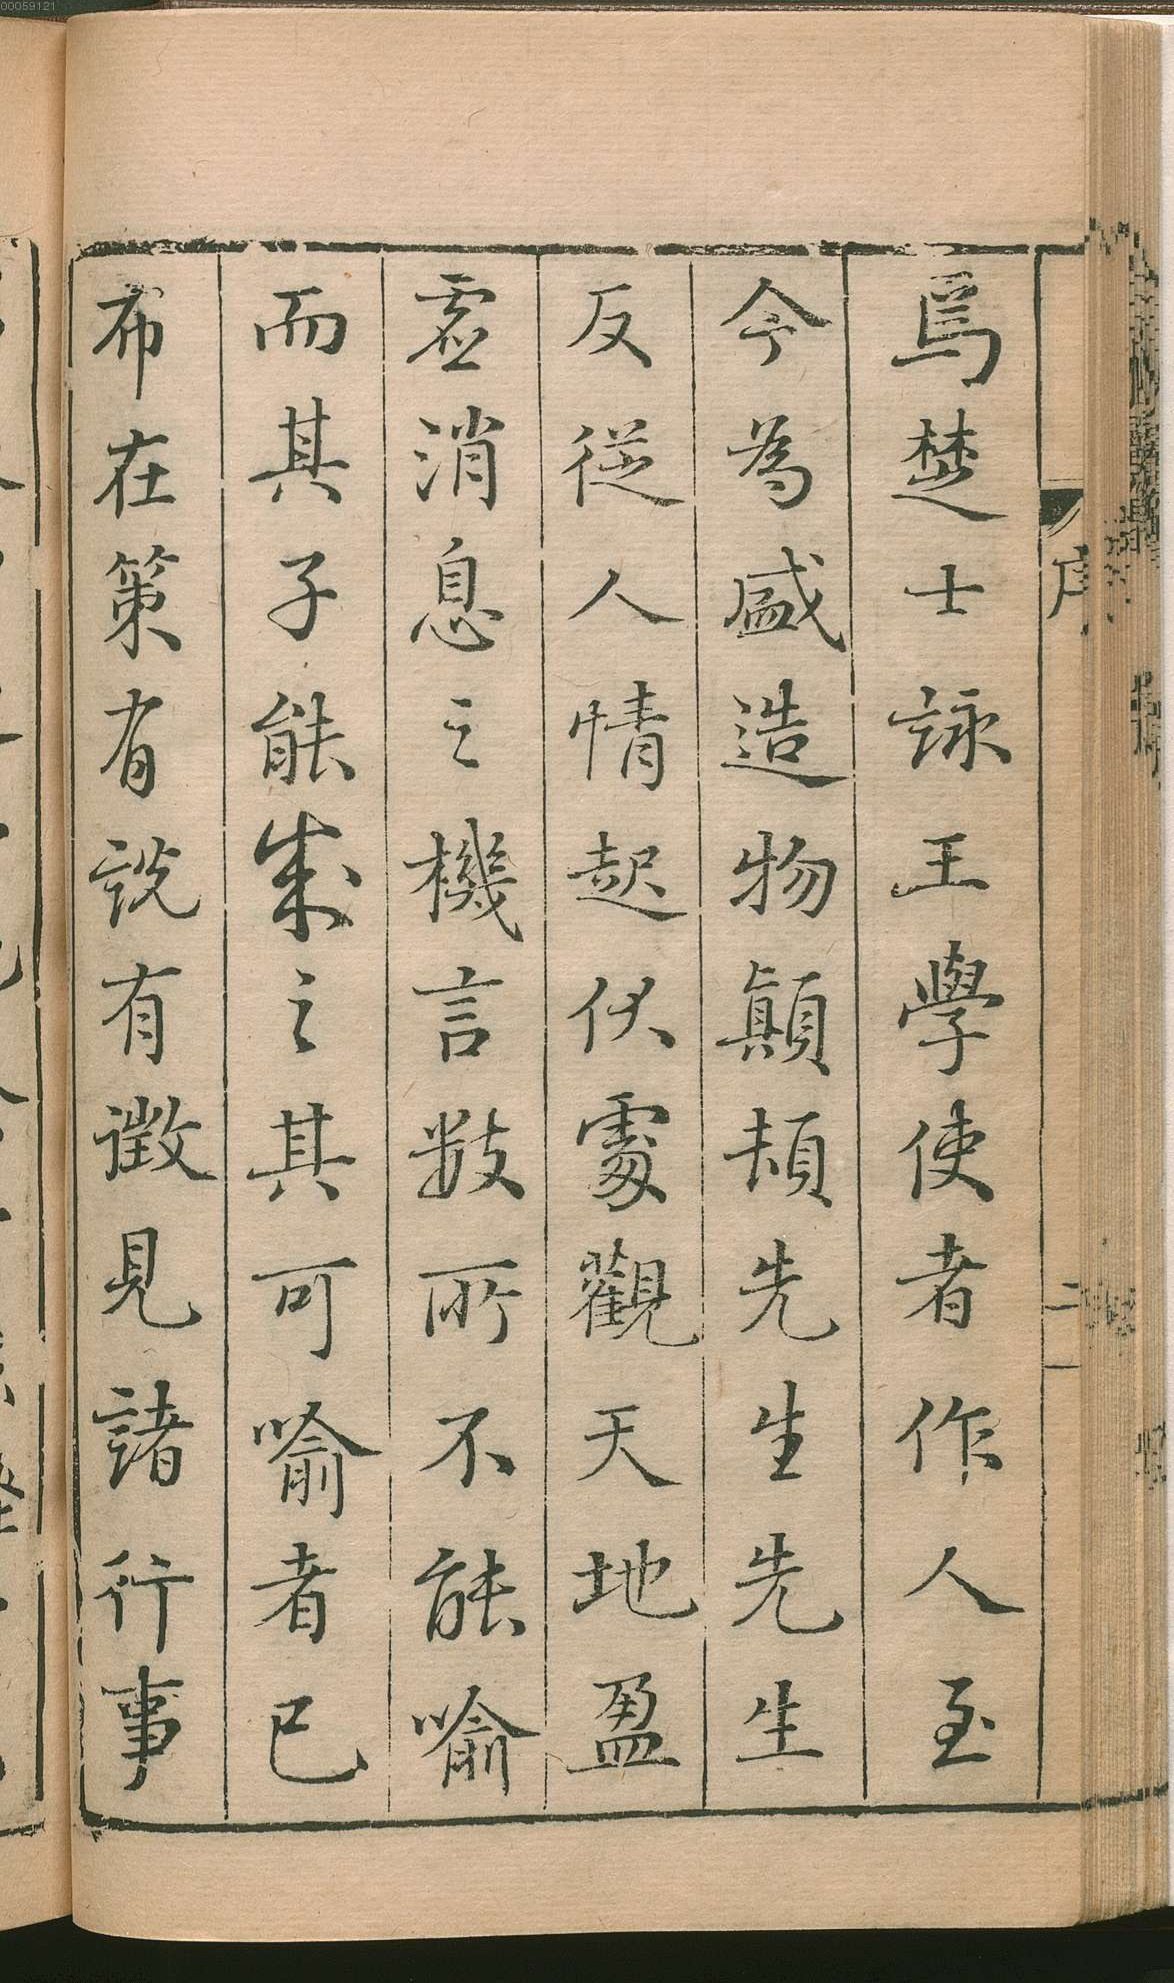 00059121
序
二
焉楚士詠王學使者作人至
今為盛造物顛頡先生先生
反從人情起伏處觀天地盈
虛消息之機言數所不能喻
而其子能乘之其可喻者已
布在策有說有徵見諸行事